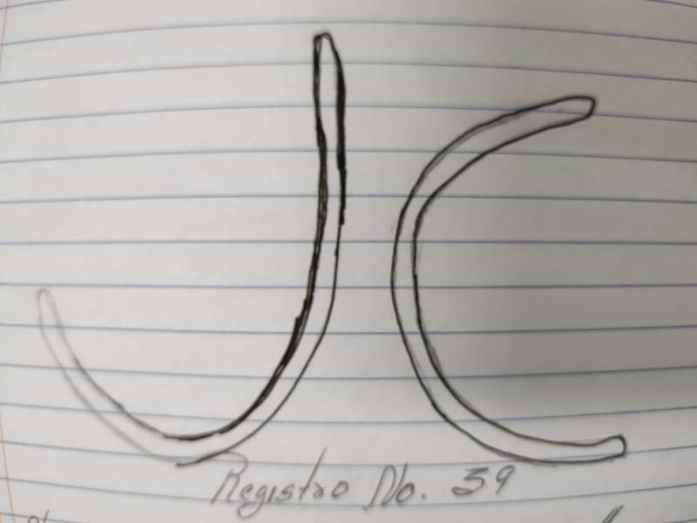 JC
Registro No. 39